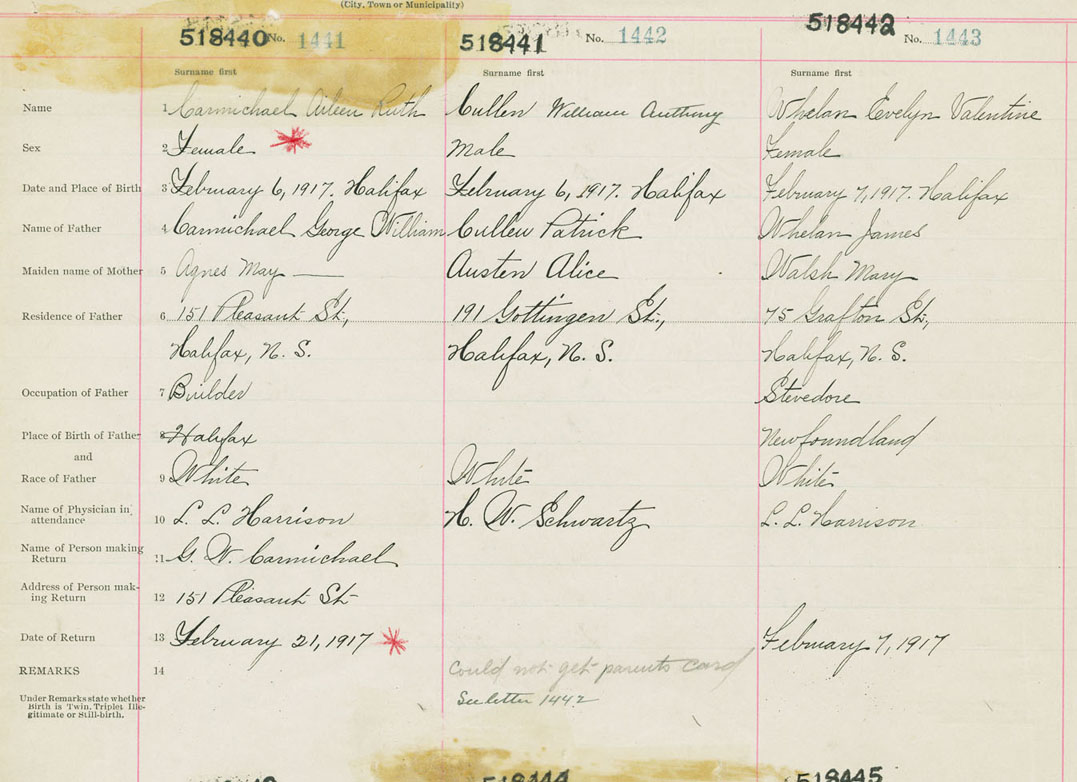 (City, Town or Municipality)
518440 No. 1441 518441 No. 1442 518442 No. 1443
Surname first Surname first Surname first
Name 1 Carmichael Aileen Ruth Cullen William Anthony Whelan Evelyn Valentine
Sex 2 Female Male Female
Date and Place of Birth 3 February 6, 1917. Halifax February 6, 1917. Halifax February 7, 1917. Halifax
Name of Father 4 Carmichael George William Cullen Patrick Whelan James
Maiden name of Mother 5 Agnes May — Austen Alice Walsh Mary
Residence of Father 6 151 Pleasant St., 191 Gottingen St., 75 Grafton St.,
Halifax, N. S. Halifax, N. S. Halifax, N. S.
Occupation of Father 7 Builder Stevedore
Place of Birth of Father 8 Halifax Newfoundland
and
Race of Father 9 White White White
Name of Physician in attendance 10 L. L. Harrison H. W. Schwartz L. L. Harrison
Name of Person making Return 11 G. W. Carmichael
Address of Person mak-
ing Return 12 151 Pleasant St
Date of Return 13 February 21, 1917 February 7, 1917
REMARKS 14 Could not get parents card
Under Remarks state whether
Birth is Twin, Triplet Ille-
gitimate or Still-birth.
See letter 1442
518444 518445